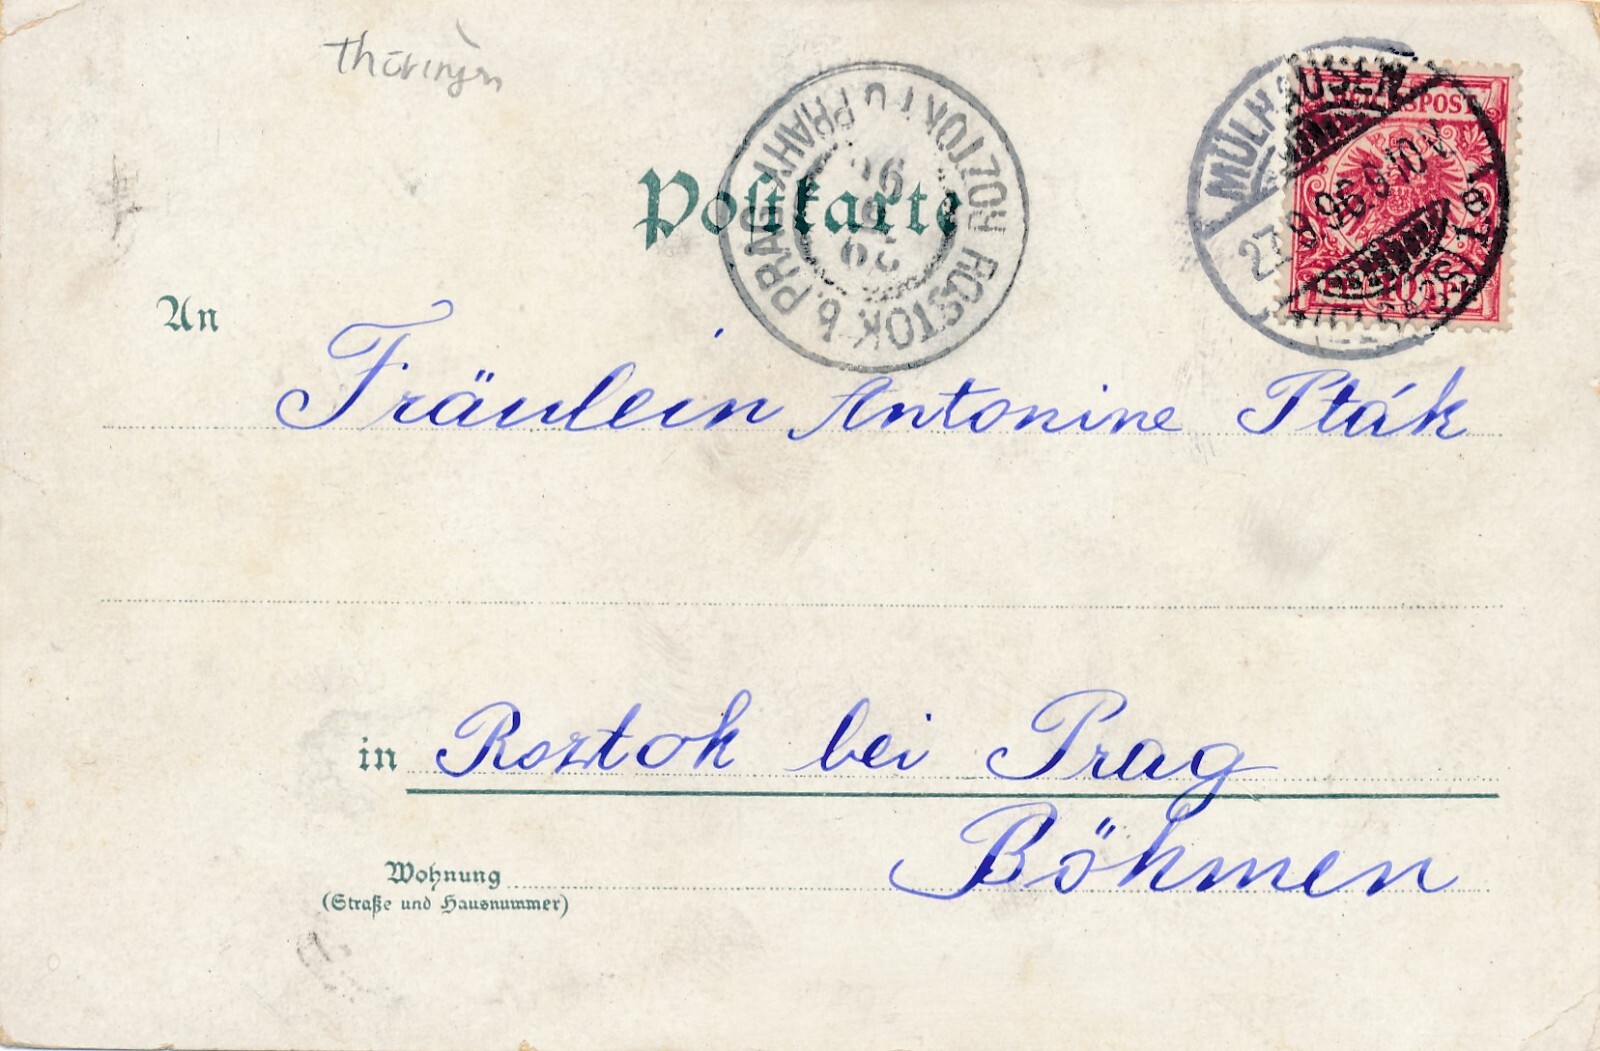 Thüringen
Postkarte
ROZTOKY U PRAHY
ROSTOK b. PRAG
29
9
96
MÜLHAUSEN
27.9.96.9-10 V.
1
(ELSASS)
REICHSPOST
10
An
Fräulein Antonine Pták
in Roztok bei Prag
Böhmen
Wohnung
(Straße und Hausnummer)